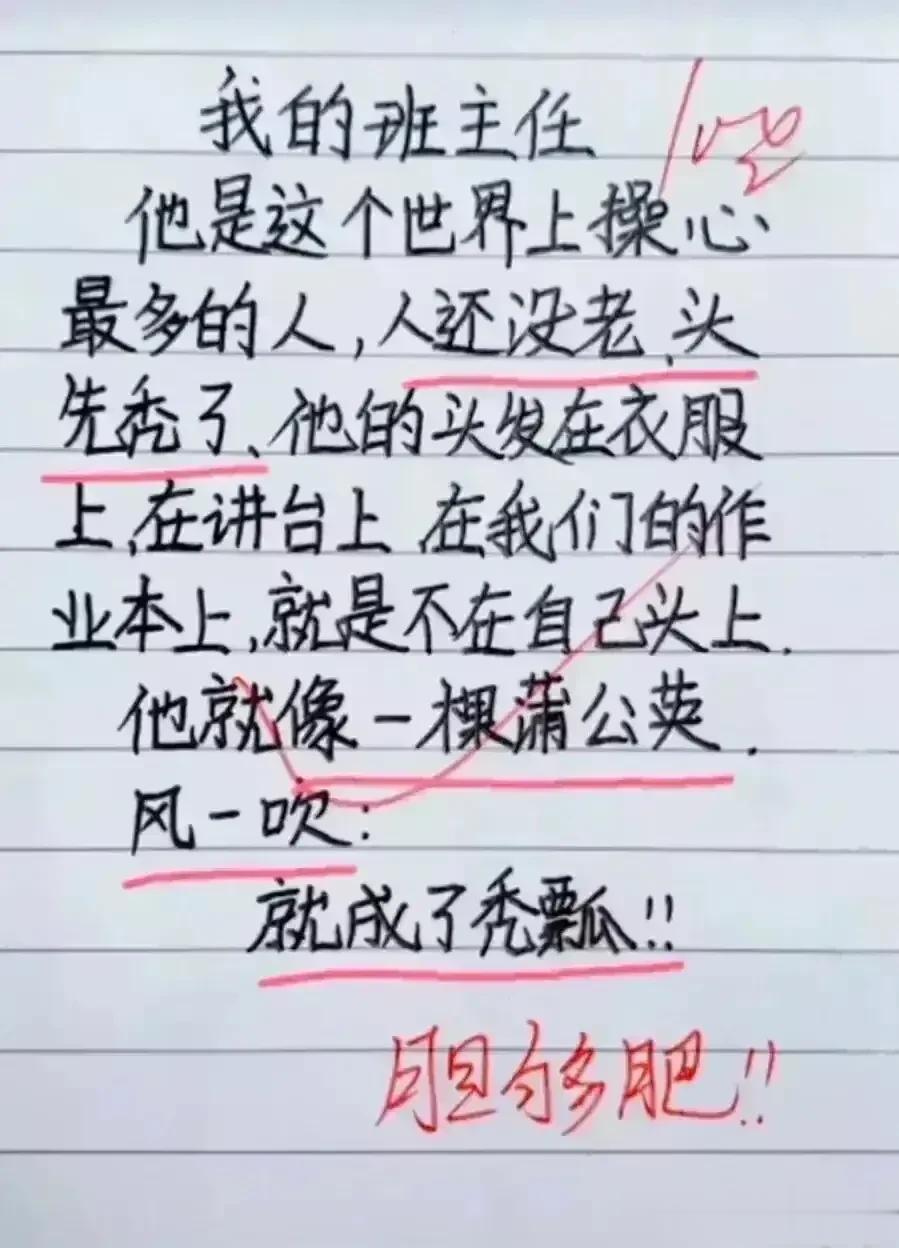 我的班主任
他是这个世界上操心
最多的人,人还没老,头
先秃了、他的头发在衣服
上,在讲台上 在我们的作
业本上,就是不在自己头上.
他就像一棵蒲公英.
风一吹:
就成了秃瓢!!
胆够肥!!